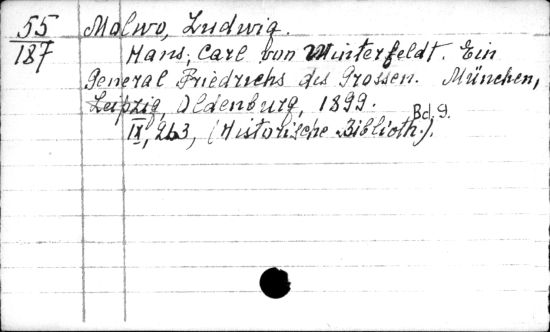 55
187
Malwo, Ludwig.
Hans, Carl von Winterfeldt. Ein
General Friedrichs des Grossen. München,
Leipzig, Oldenburg, 1899.
IX, 263, (Historische Biblioth.), Bd. 9.